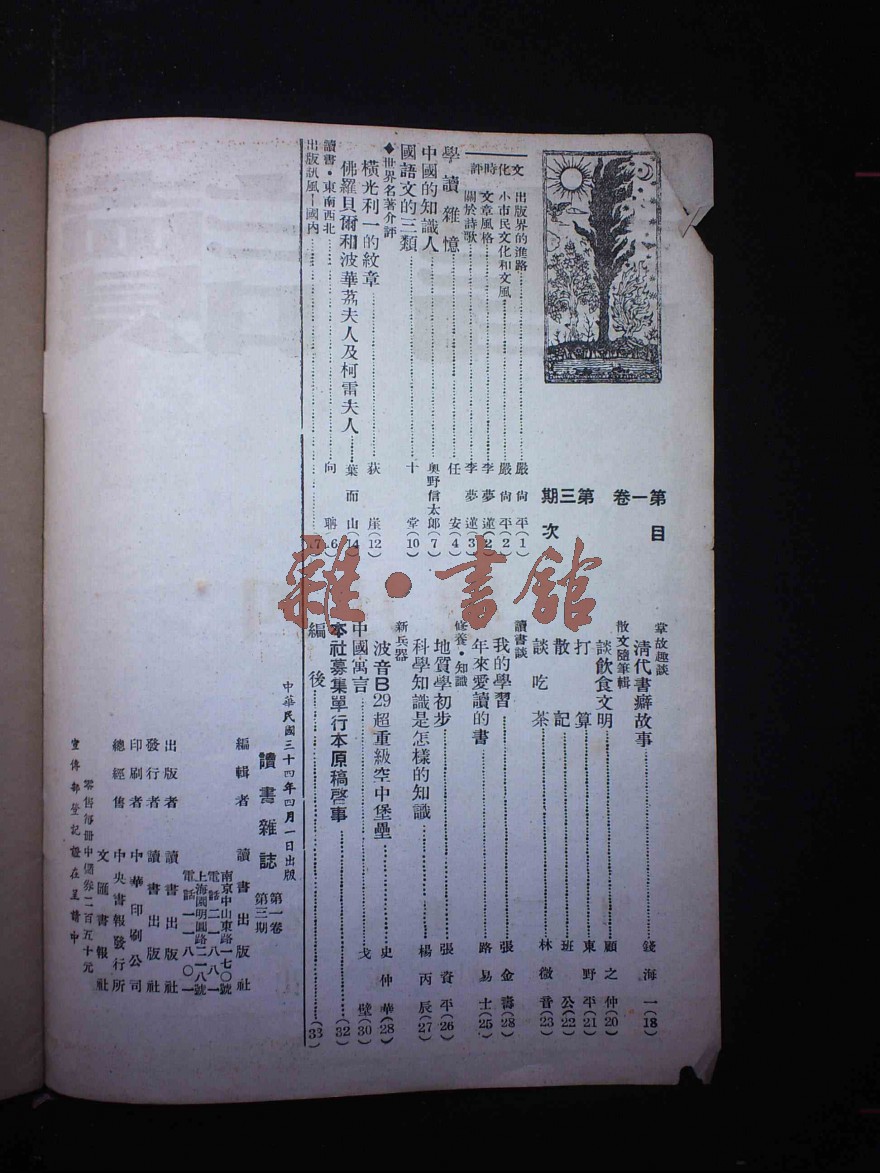 第一卷 第三期
目次
文化時評
出版界的進路……嚴尙平(1)
小市民文化和文風……嚴尙平(2)
文章風格……李夢蓮(2)
關於詩歌……李夢蓮(3)
學讀雜憶……任安(4)
中國的知識人……奧野信太郎(7)
國語文的三類……十堂(10)
◆世界名著介評
橫光利一的紋章……荻崖(12)
佛羅貝爾和波華荔夫人及柯雷夫人……葉而山(14)
讀書・東南西北……向聃(6)
出版訊風—國內……(7)
掌故趣談
清代書癖故事……錢海一(18)
散文隨筆輯
談飲食文明……顧之仲(20)
打算……東野平(21)
散記……班公(22)
談吃茶……林微音(23)
讀書談
我的學習……張金壽(28)
年來愛讀的書……路易士(25)
修養・知識
地質學初步……張資平(26)
科學知識是怎樣的知識……楊丙辰(27)
新兵器
波音B29超重級空中堡壘……史仲華(28)
中國寓言……戈壁(30)
本社募集單行本原稿啓事……(32)
編後……(33)
中華民國三十四年四月一日出版
讀書雜誌 第一卷第三期
編輯者 讀書出版社
南京中山東路一七〇號
電話二一八八一
上海圓明園路二一八號
電話一一八〇一
出版者 讀書出版社
發行者 讀書出版社
印刷者 中華印刷公司
總經售 中央書報發行所
文匯書報社
零售每冊中儲券二百五十元
宣傳部登記證在呈請中
雜・書館